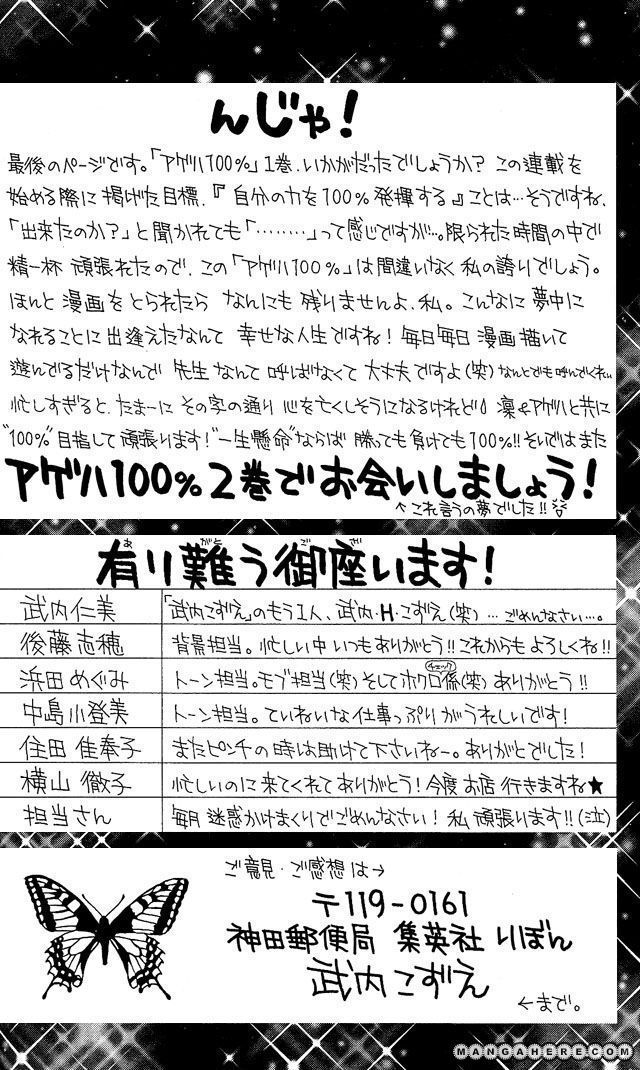 んじゃ!
最後のページです。「アゲハ100%」1巻、いかがだったでしょうか? この連載を
始める際に掲げた目標、『自分の力を100%発揮する』ことは…そうですね、
「出来たのか?」と聞かれても「………」って感じですが…。限られた時間の中で
精一杯 頑張れたので、この「アゲハ100%」は間違いなく私の誇りでしょう。
ほんと漫画をとられたら なんにも残りませんよ、私。こんなに夢中に
なれることに出逢えたなんて 幸せな人生ですね! 毎日毎日漫画描いて
遊んでるだけなんで 先生なんて呼ばなくて大丈夫ですよ(笑)なんとでも呼んでくれい
忙しすぎると、たまーにその字の通り心を亡くしそうになるけれど 凜&アゲハと共に
"100%"目指して頑張ります!"一生懸命"ならば 勝っても負けても100%!!そいではまた
アゲハ100% 2巻でお会いしましょう!
↑これ言うの夢でした!!
有り難う御座います!
あ がと ご ざ
武内仁美 「武内こずえ」のもう1人、武内・H・こずえ(笑)…ごめんなさい…。
後藤志穂 背景担当。忙しい中いつもありがとう!!これからもよろしくね!!
浜田めぐみ トーン担当。モブ担当(笑)そしてホクロ係(笑)ありがとう!!
チェック
中島小登美 トーン担当。ていねいな仕事っぷりがうれしいです!
住田佳奉子 またピンチの時は助けて下さいねー。ありがとでした!
横山徹子 忙しいのに来てくれてありがとう!今度お店行きますね★
担当さん 毎月迷惑かけまくりでごめんなさい!私頑張ります!!(泣)
ご意見・ご感想は→
〒119-0161
神田郵便局 集英社 りぼん
武内こずえ
←まで。
MANGAHERE.COM